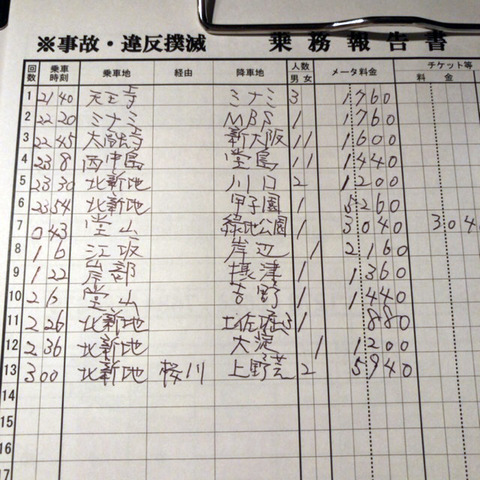 ※事故・違反撲滅 乗務報告書
回数 乗車時刻 乗車地 経由 降車地 人数 男 女 メータ料金 チケット等 料金
1 21 40 天王寺 ミナミ 3 1760
2 22 20 ミナミ MBS 1 1760
3 22 45 新大阪 1 1 1600
4 23 8 西中島 堂島 1 1 1440
5 23 30 北新地 川口 2 1200
6 23 54 北新地 甲子園 1 5260
7 0 43 堂山 緑地公園 1 3040 304
8 1 6 江坂 岸辺 1 2160
9 1 22 岸部 摂津 1 1360
10 2 6 堂山 吉野 1 1440
11 2 26 北新地 土佐堀 1 880
12 2 36 北新地 大淀 1 1200
13 3 00 北新地 桜川 上野芝 2 5940
14
15
16
17